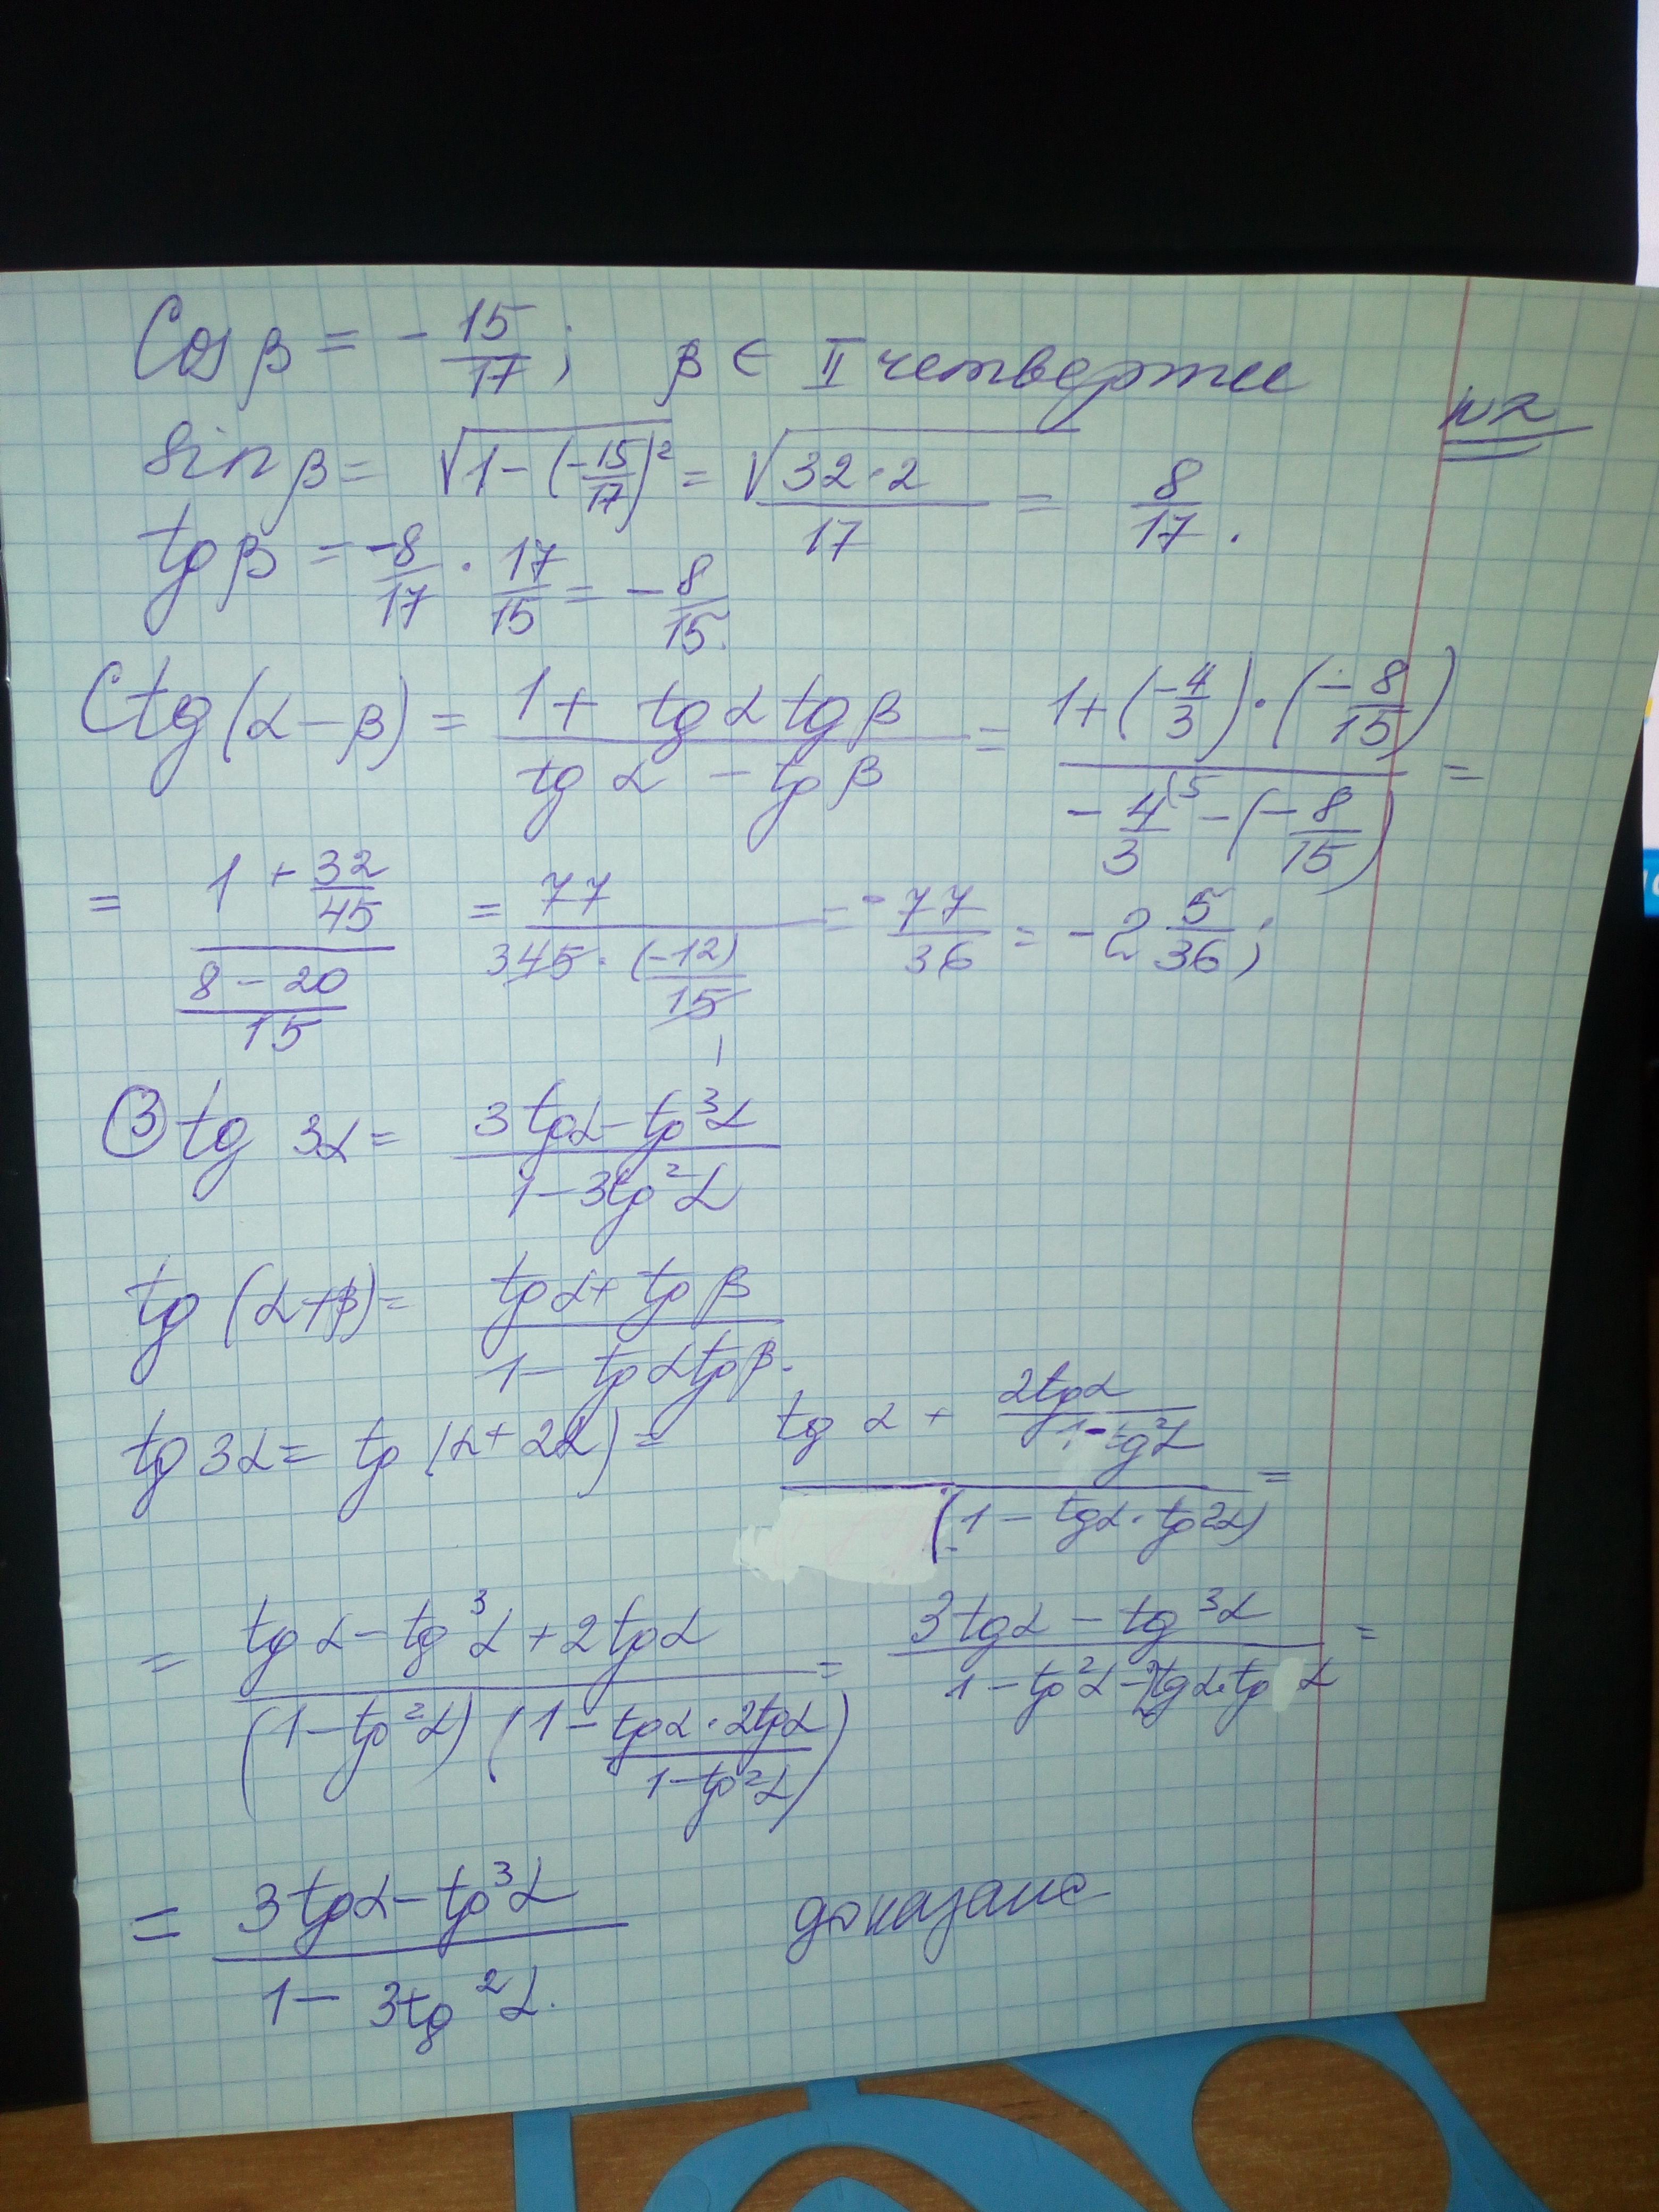 Cos β = - 15/17; β ∈ II четверти
N2
sin β = √(1 - (-15/17)²) = √(32·2)/17 = 8/17.
tg β = -8/17 · 17/15 = - 8/15.
Ctg(α - β) = (1 + tg α tg β)/(tg α - tg β) = (1 + (-4/3)·(-8/15))/(- 4/3 (5 - (-8/15)) =
= (1 + 32/45)/((8 - 20)/15) = 77/(3 45 · (-12)/15 1) = - 77/36 = -2 5/36;
③ tg 3α = (3tgα - tg³α)/(1 - 3tg²α)
tg (α+β) = (tgα + tg β)/(1 - tgα tgβ).
tg 3α = tg (α + 2α) = (tg α + 2tgα/(1-tg²α))/(1 - tgα · tg2α) =
= (tg α - tg³α + 2tgα)/((1 - tg²α)(1 - tgα · 2tgα/(1-tg²α))) = (3tgα - tg³α)/(1 - tg²α - 2tgα·tg α) =
= (3tgα - tg³α)/(1 - 3tg²α). доказано